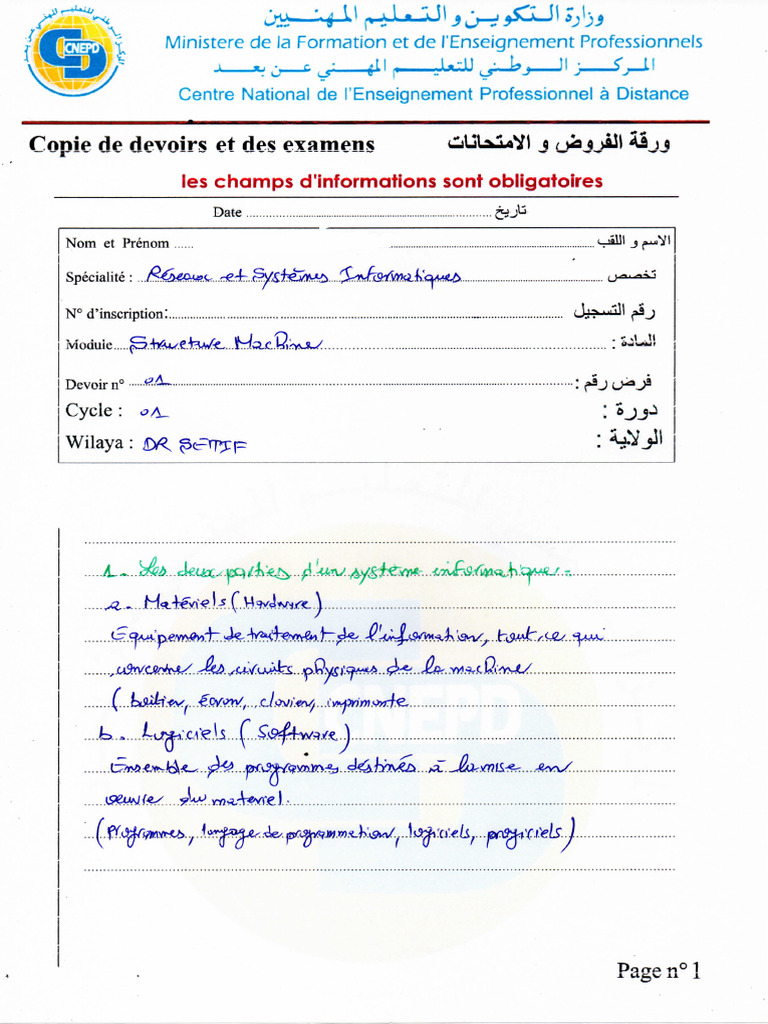 وزارة التكوين والتعليم المهنيين
Ministere de la Formation et de l'Enseignement Professionnels
المركز الوطني للتعليم المهني عن بعد
Centre National de l'Enseignement Professionnel à Distance
CNEPD
Copie de devoirs et des examens ورقة الفروض و الامتحانات
les champs d'informations sont obligatoires
Date ........ تاريخ
Nom et Prénom ........ الاسم و اللقب
Spécialité : Réseaux et Systèmes Informatiques تخصص
N° d'inscription: ........ رقم التسجيل
Module Structure Machine المادة :
Devoir n° 01 فرض رقم :
Cycle : 01 دورة :
Wilaya : DR SETIF الولاية :
1. Les deux parties d'un système informatique :
a. Matériels (Hardware)
Equipement de traitement de l'information, tout ce qui
concerne les circuits physiques de la machine
( boitier, écran, clavier, imprimante
b. Logiciels ( Software )
Ensemble des programmes destinés à la mise en
œuvre du materiel.
(Programmes, langage de programmation, logiciels, progiciels)
CNEPD
Page n° 1